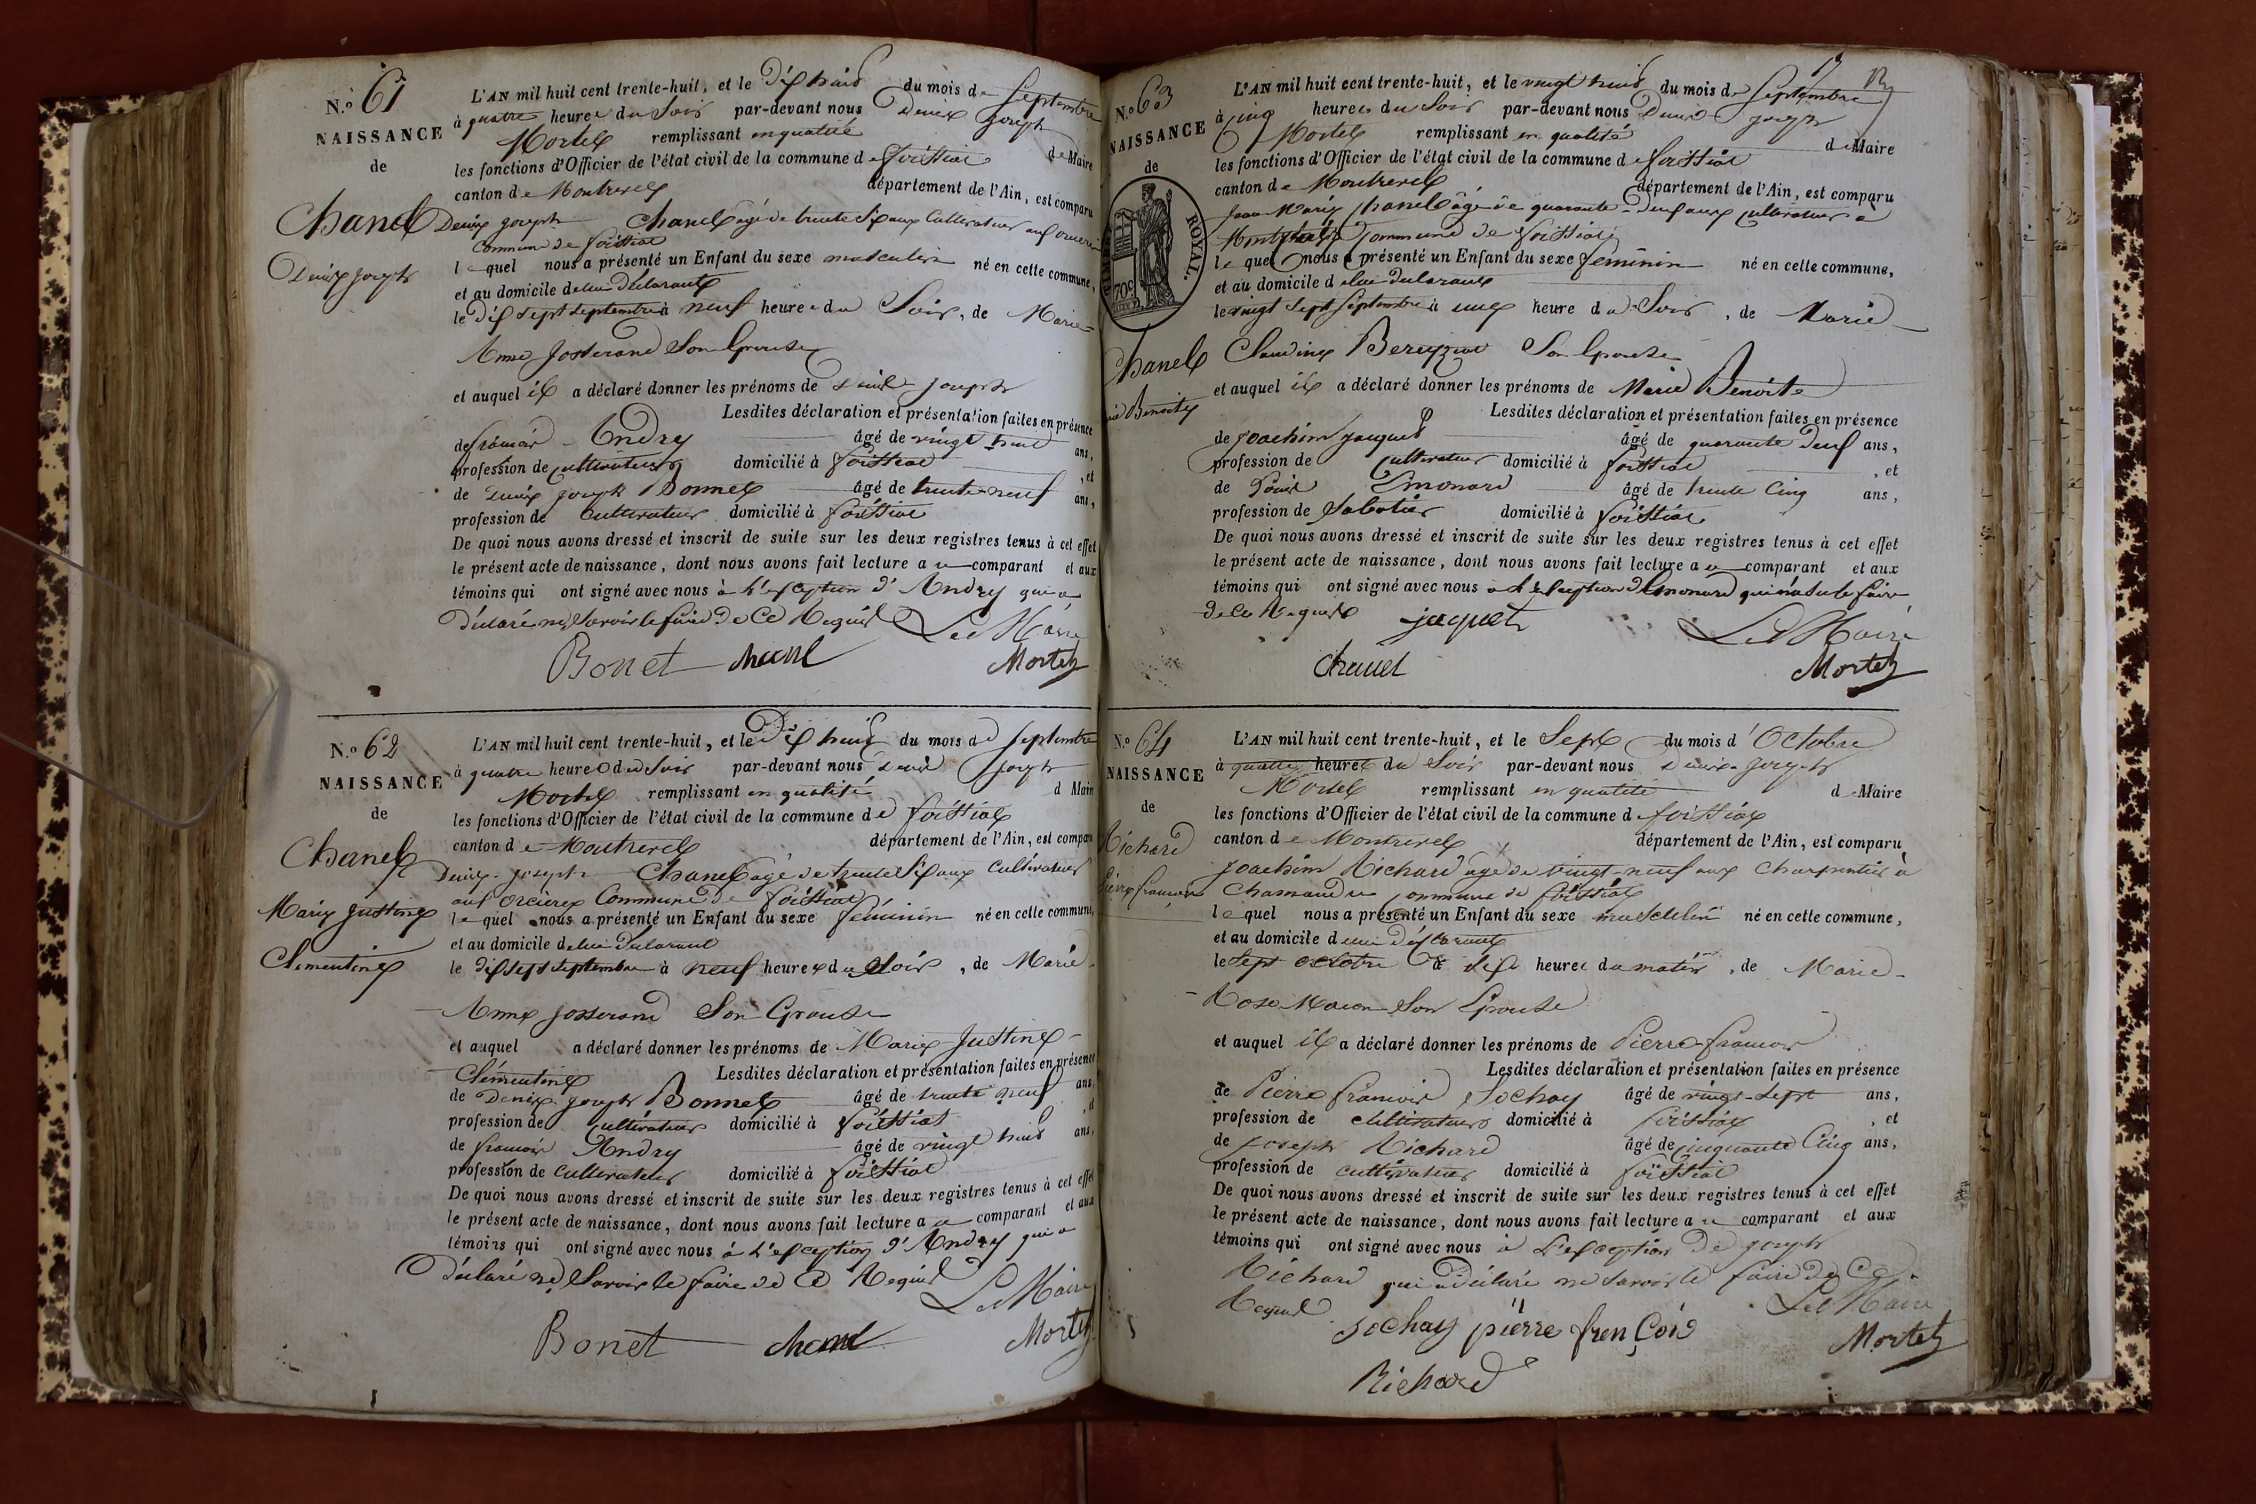 N.o 61
NAISSANCE
de
Chanel
Denis joseph
L'AN mil huit cent trente-huit, et le dix huit du mois de Septembre
à quatre heures du Soir par-devant nous Denis joseph
Mortel remplissant en qualité de Maire
les fonctions d'Officier de l'état civil de la commune de foissiat
canton de Montrevel département de l'Ain, est comparu
Denis joseph Chanel âgé de trente Six ans Cultivateur aux orcières
Commune de foissiat
lequel nous a présenté un Enfant du sexe masculin né en cette commune,
et au domicile de lui déclarant
le dix sept septembre à neuf heures du Soir, de Marie
Anne Josserand Son Epouse
et auquel il a déclaré donner les prénoms de Denis joseph
Lesdites déclaration et présentation faites en présence
de françois Andry âgé de vingt huit ans,
profession de cultivateur domicilié à foissiat, et
de Denis joseph Bonnet âgé de trente neuf ans,
profession de Cultivateur domicilié à foissiat
De quoi nous avons dressé et inscrit de suite sur les deux registres tenus à cet effet
le présent acte de naissance, dont nous avons fait lecture au comparant et aux
témoins qui ont signé avec nous à L'exception d'Andry qui a
Déclaré ne Savoir le faire de Ce Requis Le Maire
Bonet chanel Mortel
N.o 62
NAISSANCE
de
Chanel
Marie Justine
Clementine
L'AN mil huit cent trente-huit, et le Dix huit du mois de Septembre
à quatre heures du Soir par-devant nous Denis joseph
Mortel remplissant en qualité d Maire
les fonctions d'Officier de l'état civil de la commune de foissiat
canton de Montrevel département de l'Ain, est comparu
Denis joseph Chanel âgé de trente Six ans Cultivateur
aux orcières Commune de foissiat
lequel nous a présenté un Enfant du sexe féminin né en cette commune,
et au domicile de lui déclarant
le dix sept septembre à neuf heures du Soir, de Marie
Anne josserand Son Epouse
et auquel a déclaré donner les prénoms de Marie Justine
Clémentine Lesdites déclaration et présentation faites en présence
de Denis joseph Bonnet âgé de trente neuf ans,
profession de cultivateur domicilié à foissiat, et
de françois Andry âgé de vingt huit ans,
profession de cultivateur domicilié à foissiat
De quoi nous avons dressé et inscrit de suite sur les deux registres tenus à cet effet
le présent acte de naissance, dont nous avons fait lecture au comparant et aux
témoins qui ont signé avec nous à L'exception d'Andry qui a
Déclaré ne Savoir le faire de Ce Requis Le Maire
Bonet chanel Mortel
13
N.o 63
NAISSANCE
de
ROYAL.
70c
Chanel
Benoite
L'AN mil huit cent trente-huit, et le vingt huit du mois de Septembre
à cinq heures du Soir par-devant nous Denis joseph
Mortel remplissant en qualité de Maire
les fonctions d'Officier de l'état civil de la commune de foissiat
canton de Montrevel département de l'Ain, est comparu
Jean Marie Chanel âgé de quarante deux ans cultivateur à
Commune de foissiat
lequel nous a présenté un Enfant du sexe féminin né en cette commune,
et au domicile de lui declarant
le vingt sept Septembre à une heure du Soir, de Marie
Claudine Son Epouse
et auquel il a déclaré donner les prénoms de Marie Benoite
Lesdites déclaration et présentation faites en présence
de joachim jacquet âgé de quarante deux ans,
profession de cultivateur domicilié à foissiat, et
de Louis Emonard âgé de trente Cinq ans,
profession de Sabotier domicilié à foissiat
De quoi nous avons dressé et inscrit de suite sur les deux registres tenus à cet effet
le présent acte de naissance, dont nous avons fait lecture au comparant et aux
témoins qui ont signé avec nous à L'exception d'Emonard qui n'a su le faire
de ce Requis jaquet Le Maire
chanel Mortel
N.o 64
NAISSANCE
de
Richard
Pierre françois
L'AN mil huit cent trente-huit, et le Sept du mois d'Octobre
à quatre heures du Soir par-devant nous Denis joseph
Mortel remplissant en qualité de Maire
les fonctions d'Officier de l'état civil de la commune de foissiat
canton de Montrevel département de l'Ain, est comparu
Joachim Richard âgé de vingt-neuf ans Charpentier à
Chamandre commune de foissiat
lequel nous a présenté un Enfant du sexe masculin né en cette commune,
et au domicile de lui déclarant
le Sept octobre à dix heures du matin, de Marie
Rose Macon Son Epouse
et auquel il a déclaré donner les prénoms de Pierre françois
Lesdites déclaration et présentation faites en présence
de Pierre françois Sochay âgé de vingt-sept ans,
profession de cultivateur domicilié à foissiat, et
de joseph Richard âgé de cinquante Cinq ans,
profession de cultivateur domicilié à foissiat
De quoi nous avons dressé et inscrit de suite sur les deux registres tenus à cet effet
le présent acte de naissance, dont nous avons fait lecture au comparant et aux
témoins qui ont signé avec nous à L'exception de joseph
Richard qui a Déclaré ne Savoir le faire de Ce
Requis Le Maire
sochay pierre frençois Mortel
Richard